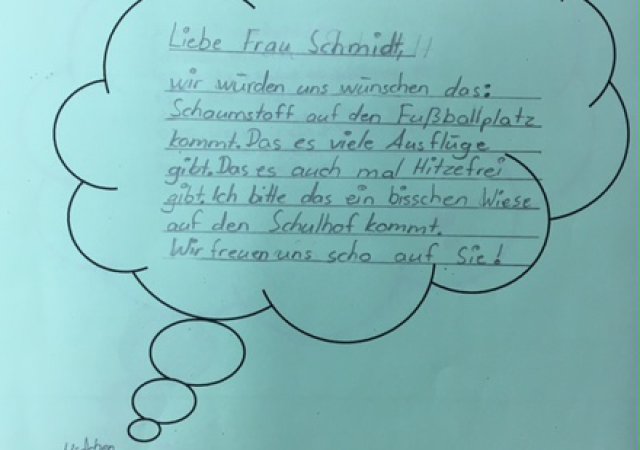 Liebe Frau Schmidt,
wir würden uns wünschen das:
Schaumstoff auf den Fußballplatz
kommt. Das es viele Ausflüge
gibt. Das es auch mal Hitzefrei
gibt. Ich bitte das ein bisschen Wiese
auf den Schulhof kommt.
Wir freuen uns scho auf Sie!